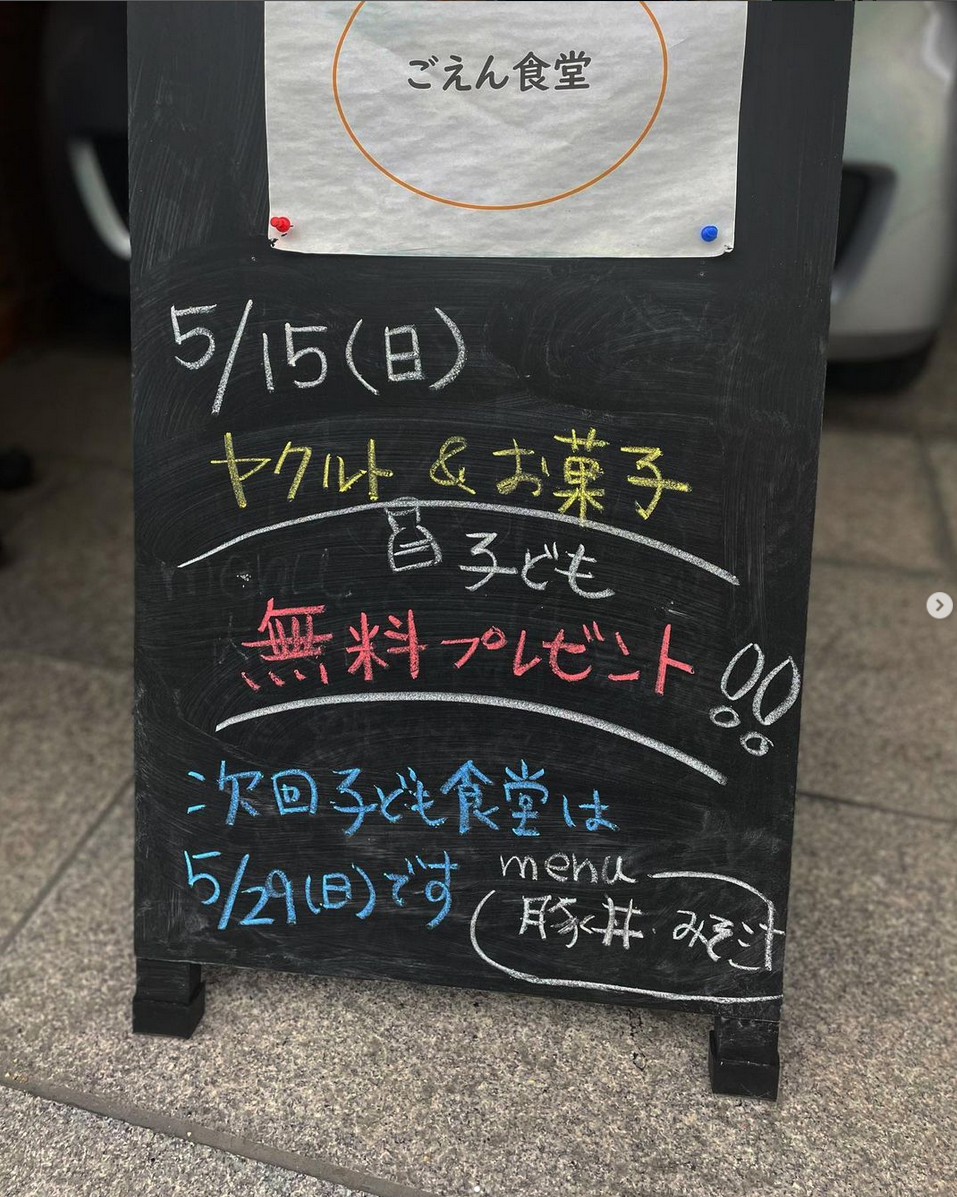 ごえん食堂
5/15(日)
ヤクルト & お菓子
子ども
無料プレゼント!!
次回子ども食堂は
5/29(日)です
menu
豚丼 みそ汁